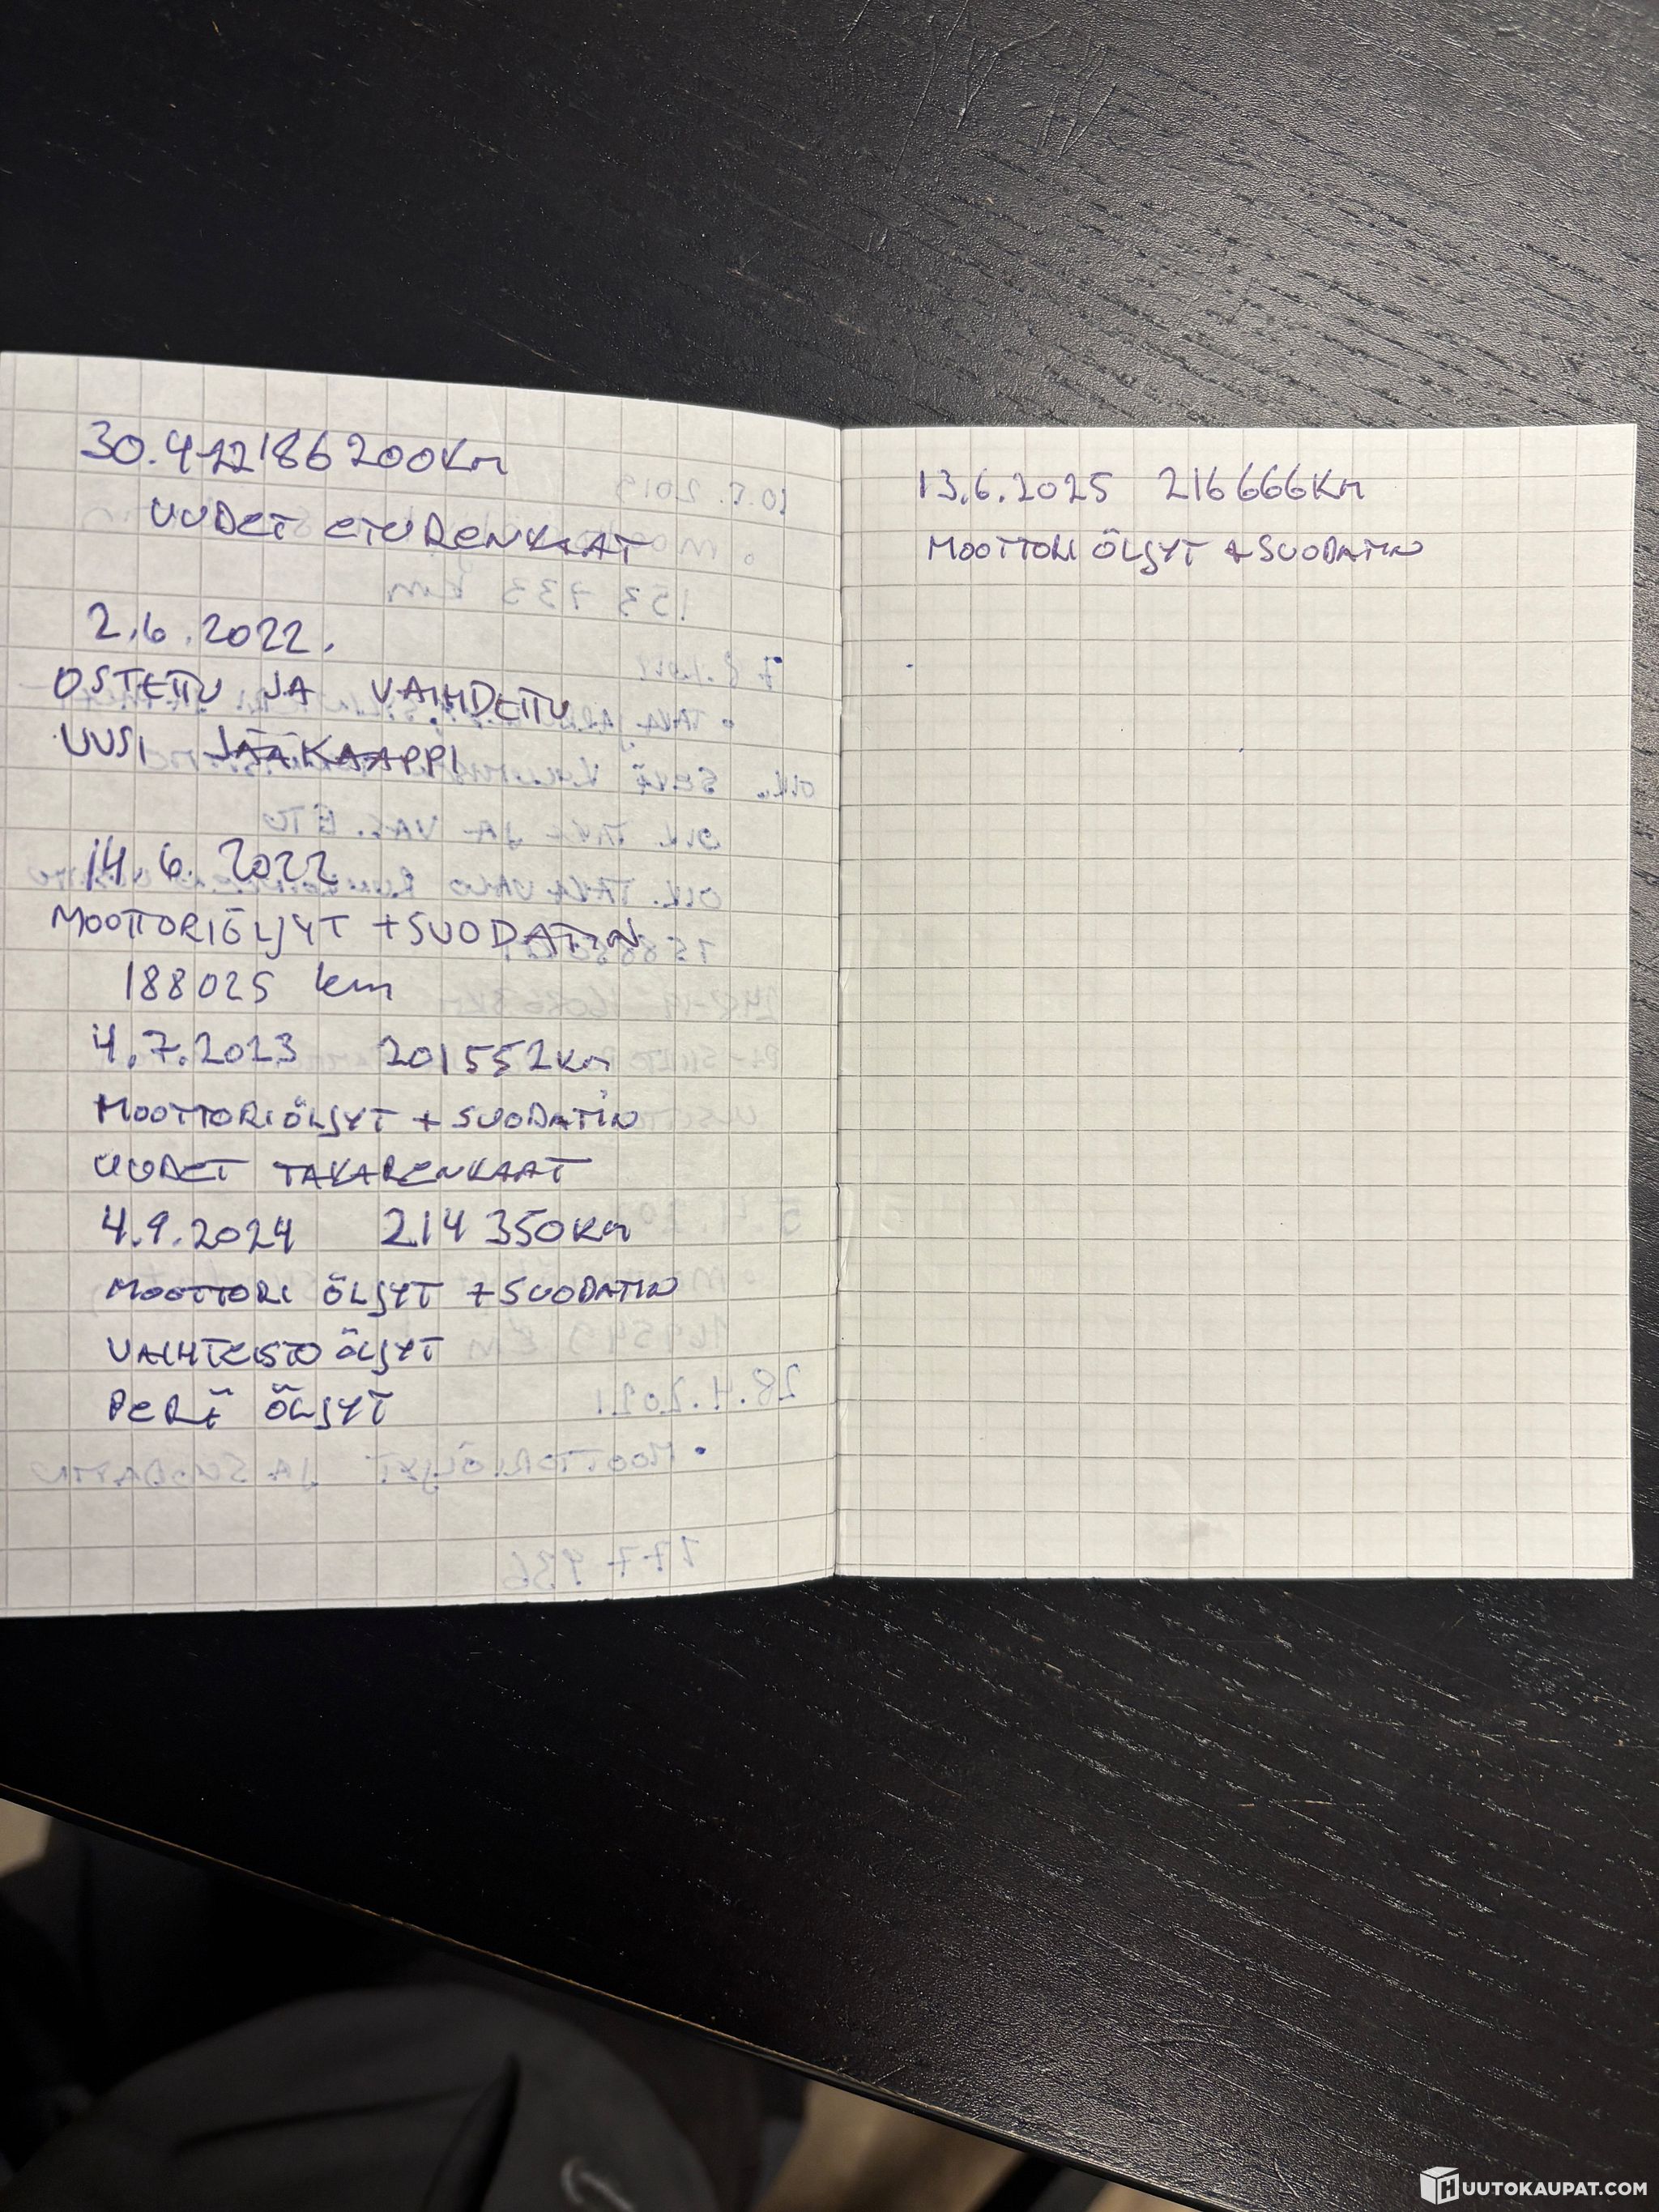 30.4-22 186 200Km
UUDET ETURENKAAT
2.6.2022.
OSTETTU JA VAIHDETTU
UUSI JÄÄKAAPPI
14.6.2022
MOOTTORIÖLJYT +SUODATIN
188025 km
4.7.2023 201552km
MOOTTORIÖLJYT + SUODATIN
UUDET TAKARENKAAT
4.9.2024 214 350Km
MOOTTORI ÖLJYT +SUODATIN
VAIHTEISTO ÖLJYT
PERÄ ÖLJYT
13.6.2025 216666Km
MOOTTORI ÖLJYT +SUODATIN
HUUTOKAUPAT.COM